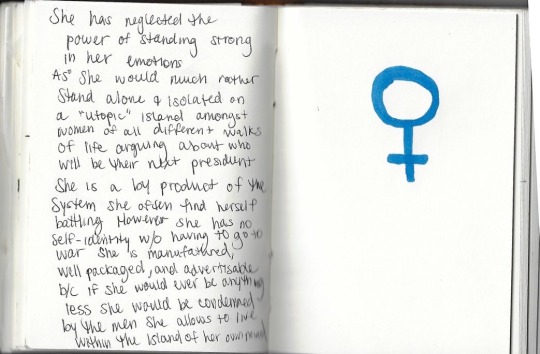 She has neglected the
power of standing strong
in her emotions
As She would much rather
Stand alone & isolated on
a "utopic" island amongst
women of all different walks
of life arguing about who
will be their next president
She is a by product of the
System she often find herself
battling However she has no
self-identity w/o having to go to
war she is manufatured,
well packaged, and advertisable
b/c if she would ever be anything
less she would be condemned
by the men she allows to live
within the island of her own mind